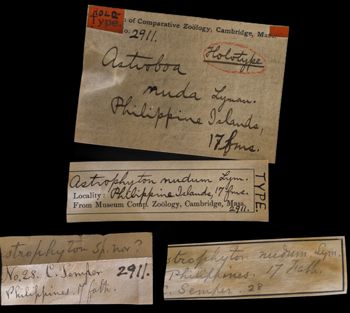 HOLO
Type.
of Comparative Zoölogy, Cambridge, Mass.
No. 2911.
Holotype
Astroboa
nuda Lyman.
Philippine Islands,
17 fms.
Astrophyton nudum Lym.
Locality: Philippine Islands, 17 fms.
From Museum Comp. Zoology, Cambridge, Mass.
2911.
TYPE.
strophyton Sp. nov?
No. 28. C. Semper 2911.
Philippines. 17 fath.
strophyton nudum Lym.
Philippines. 17 Fath.
C. Semper. 28